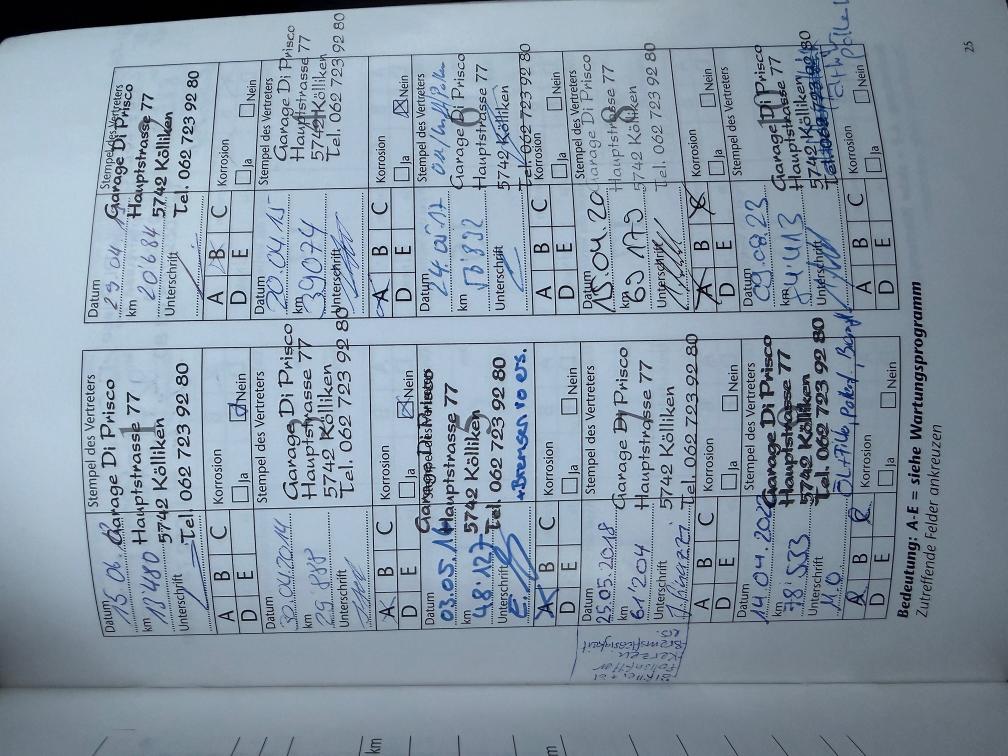 Datum
Stempel des Vertreters
15.06.
Garage Di Prisco
Hauptstrasse 77
5742 Kölliken
Tel. 062 723 92 80
km
11'480
Unterschrift
1
A B C
D E
Korrosion
Ja Nein
Datum
Stempel des Vertreters
29.04
Garage Di Prisco
Hauptstrasse 77
5742 Kölliken
Tel. 062 723 92 80
km
20684
Unterschrift
A B C
D E
Korrosion
Ja Nein
Datum
Stempel des Vertreters
30.04.2014
Garage Di Prisco
Hauptstrasse 77
5742 Kölliken
Tel. 062 723 92 80
km
29'888
Unterschrift
A B C
D E
Korrosion
Ja Nein
Datum
Stempel des Vertreters
20.04.15
Garage Di Prisco
Hauptstrasse 77
5742 Kölliken
Tel. 062 723 92 80
km
39074
Unterschrift
A B C
D E
Korrosion
Ja Nein
Datum
Stempel des Vertreters
03.05.16
Garage Di Prisco
Hauptstrasse 77
5742 Kölliken
Tel. 062 723 92 80
km
48'127
Unterschrift
5
+Bremsen vo ers.
A B C
D E
Korrosion
Ja Nein
Datum
Stempel des Vertreters
Garage Di Prisco
Hauptstrasse 77
5742 Kölliken
Tel. 062 723 92 80
km
Unterschrift
6
A B C
D E
Korrosion
Ja Nein
Datum
Stempel des Vertreters
25.05.2018
Garage Di Prisco
Hauptstrasse 77
5742 Kölliken
Tel. 062 723 92 80
km
61'204
Unterschrift
7
Kerzen
Bremsflüssigkeit
A B C
D E
Korrosion
Ja Nein
Datum
Stempel des Vertreters
15.04.20
Garage Di Prisco
Hauptstrasse 77
5742 Kölliken
Tel. 062 723 92 80
km
69 179
Unterschrift
8
A B C
D E
Korrosion
Ja Nein
Datum
Stempel des Vertreters
14.04.202
Garage Di Prisco
Hauptstrasse 77
5742 Kölliken
Tel. 062 723 92 80
km
78'553
Unterschrift
A B C
D E
Korrosion
Ja Nein
Datum
Stempel des Vertreters
09.08.23
Garage Di Prisco
Hauptstrasse 77
5742 Kölliken
km
84413
Unterschrift
A B C
D E
Korrosion
Ja Nein
Bedeutung: A-E = siehe Wartungsprogramm
Zutreffende Felder ankreuzen
25
km